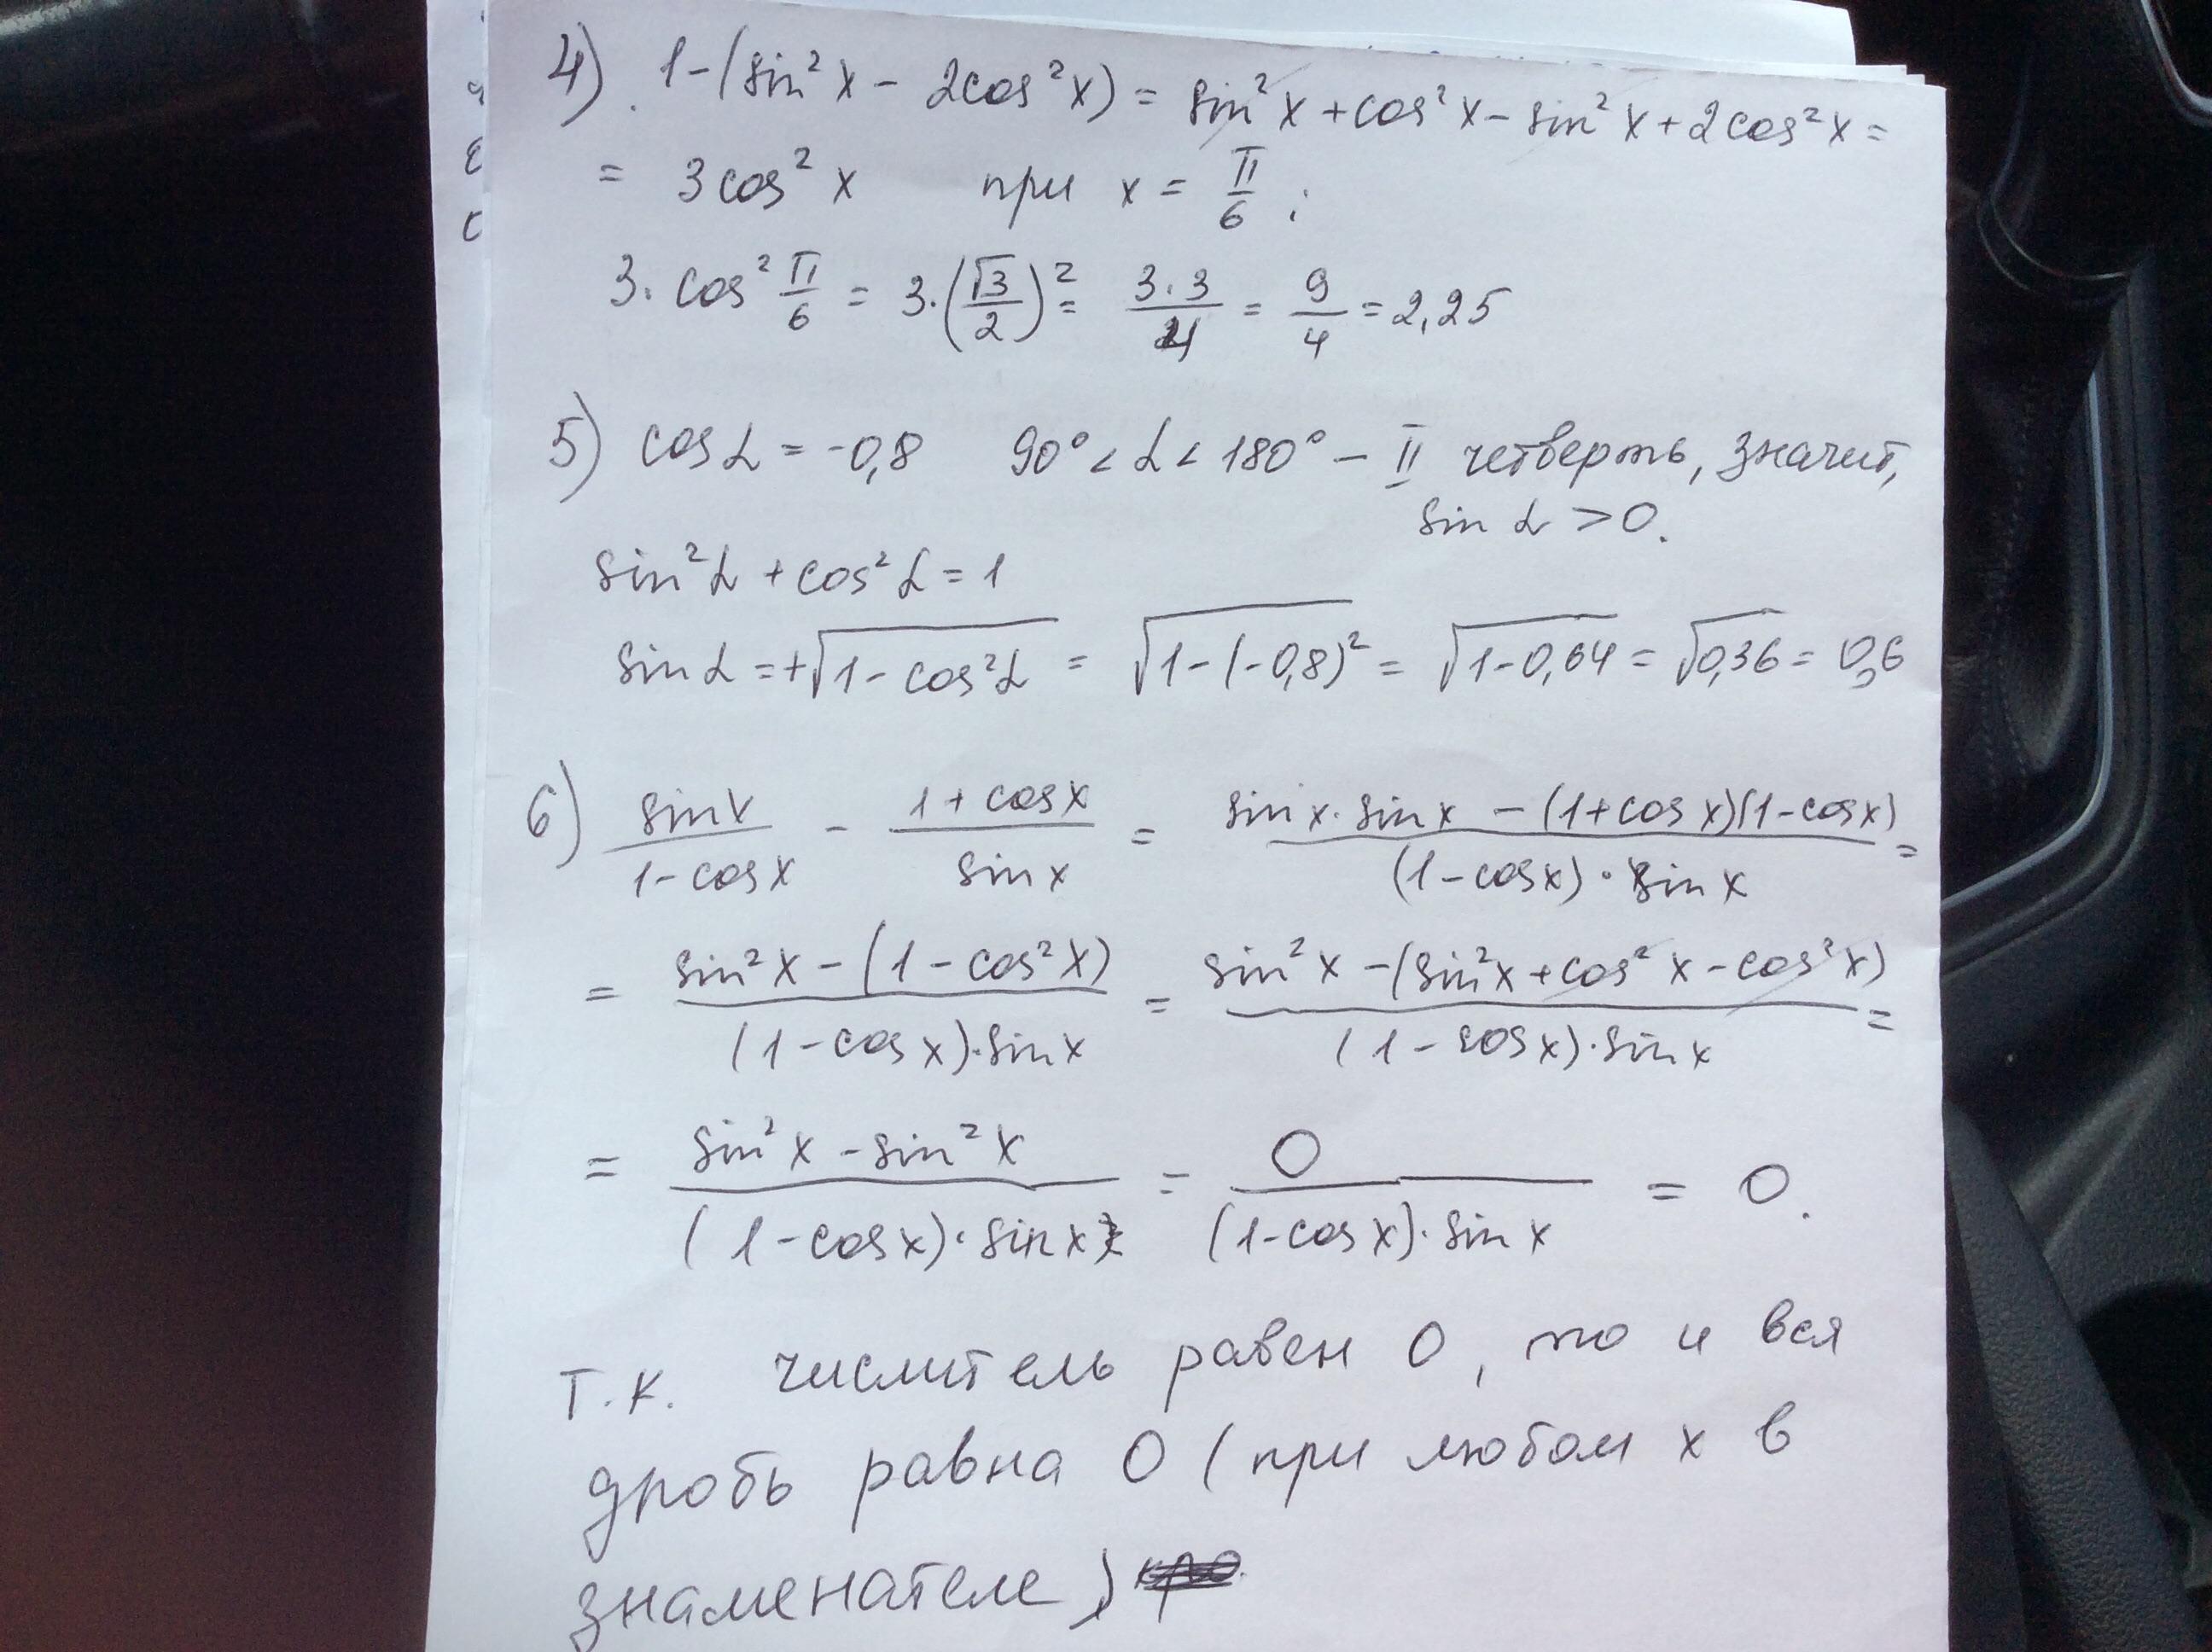 4) 1-(sin²x - 2cos²x) = sin²x + cos²x - sin²x + 2cos²x =
= 3cos²x при x = π/6 ;
3·cos² π/6 = 3·(√3/2)² = 3·3/4 = 9/4 = 2,25
5) cos α = -0,8 90° < α < 180° - II четверть, значит,
sin α > 0.
sin²α + cos²α = 1
sin α = +√(1 - cos²α) = √(1-(-0,8)²) = √(1-0,64) = √0,36 = 0,6
6) sin x/(1-cos x) - (1+cos x)/sin x = (sin x · sin x - (1+cos x)(1-cos x))/((1-cos x)·sin x) =
= (sin²x - (1-cos²x))/((1-cos x)·sin x) = (sin²x - (sin²x + cos²x - cos²x))/((1-cos x)·sin x) =
= (sin²x - sin²x)/((1-cos x)·sin x) = 0/((1-cos x)·sin x) = 0.
Т.к. числитель равен 0, то и вся
дробь равна 0 (при любом x в
знаменателе)